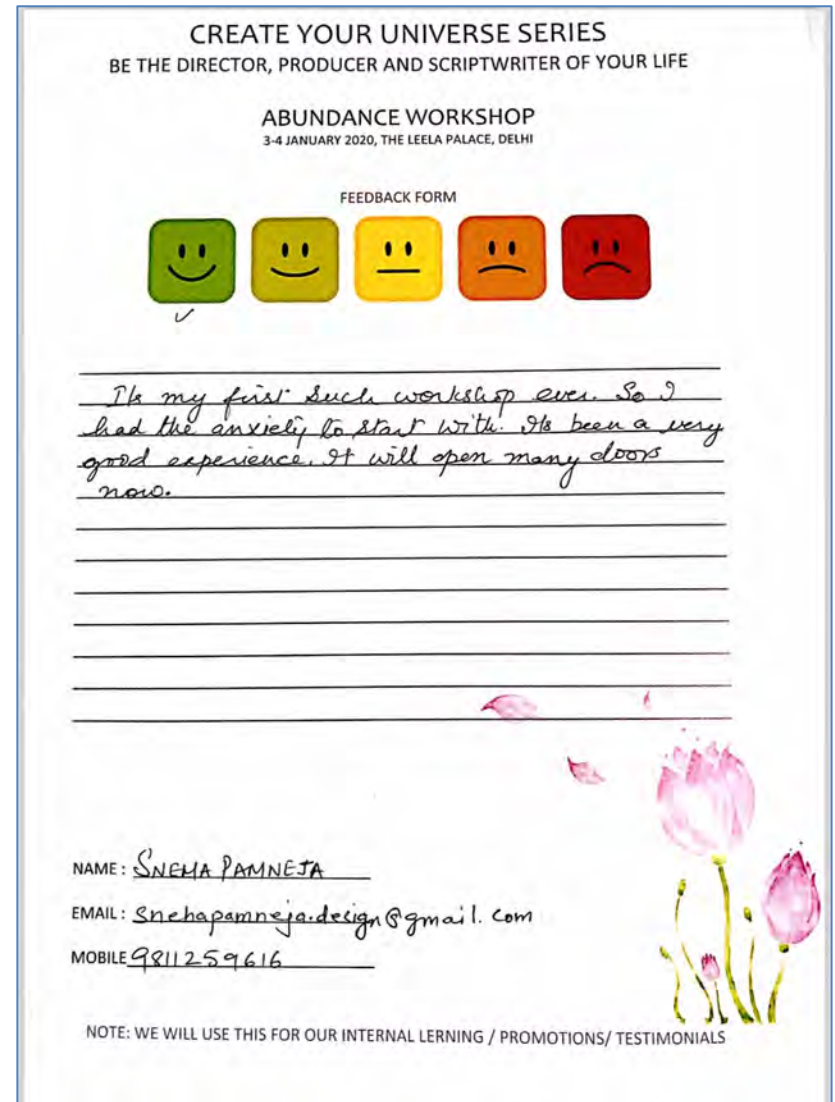 CREATE YOUR UNIVERSE SERIES
BE THE DIRECTOR, PRODUCER AND SCRIPTWRITER OF YOUR LIFE
ABUNDANCE WORKSHOP
3-4 JANUARY 2020, THE LEELA PALACE, DELHI
FEEDBACK FORM
Its my first such workshop ever. So I
had the anxiety to start with. Its been a very
good experience. It will open many doors
now.
NAME: SNEHA PAMNEJA
EMAIL: snehapamneja.design@gmail.com
MOBILE 9811259616
NOTE: WE WILL USE THIS FOR OUR INTERNAL LERNING / PROMOTIONS/ TESTIMONIALS